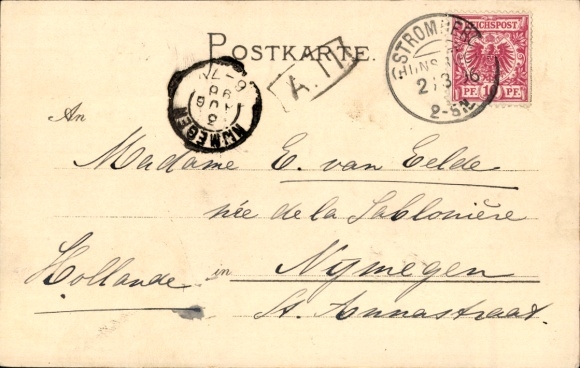 POSTKARTE.
STROMBERG
HUNS
2-5N.
REICHSPOST
10 PF. 10 PF.
NIJMEGEN
3 AUG
96
6-7N
An
Madame E. van Eelde
née de la Sablonière
Hollande in Nijmegen
St. Annastraat.